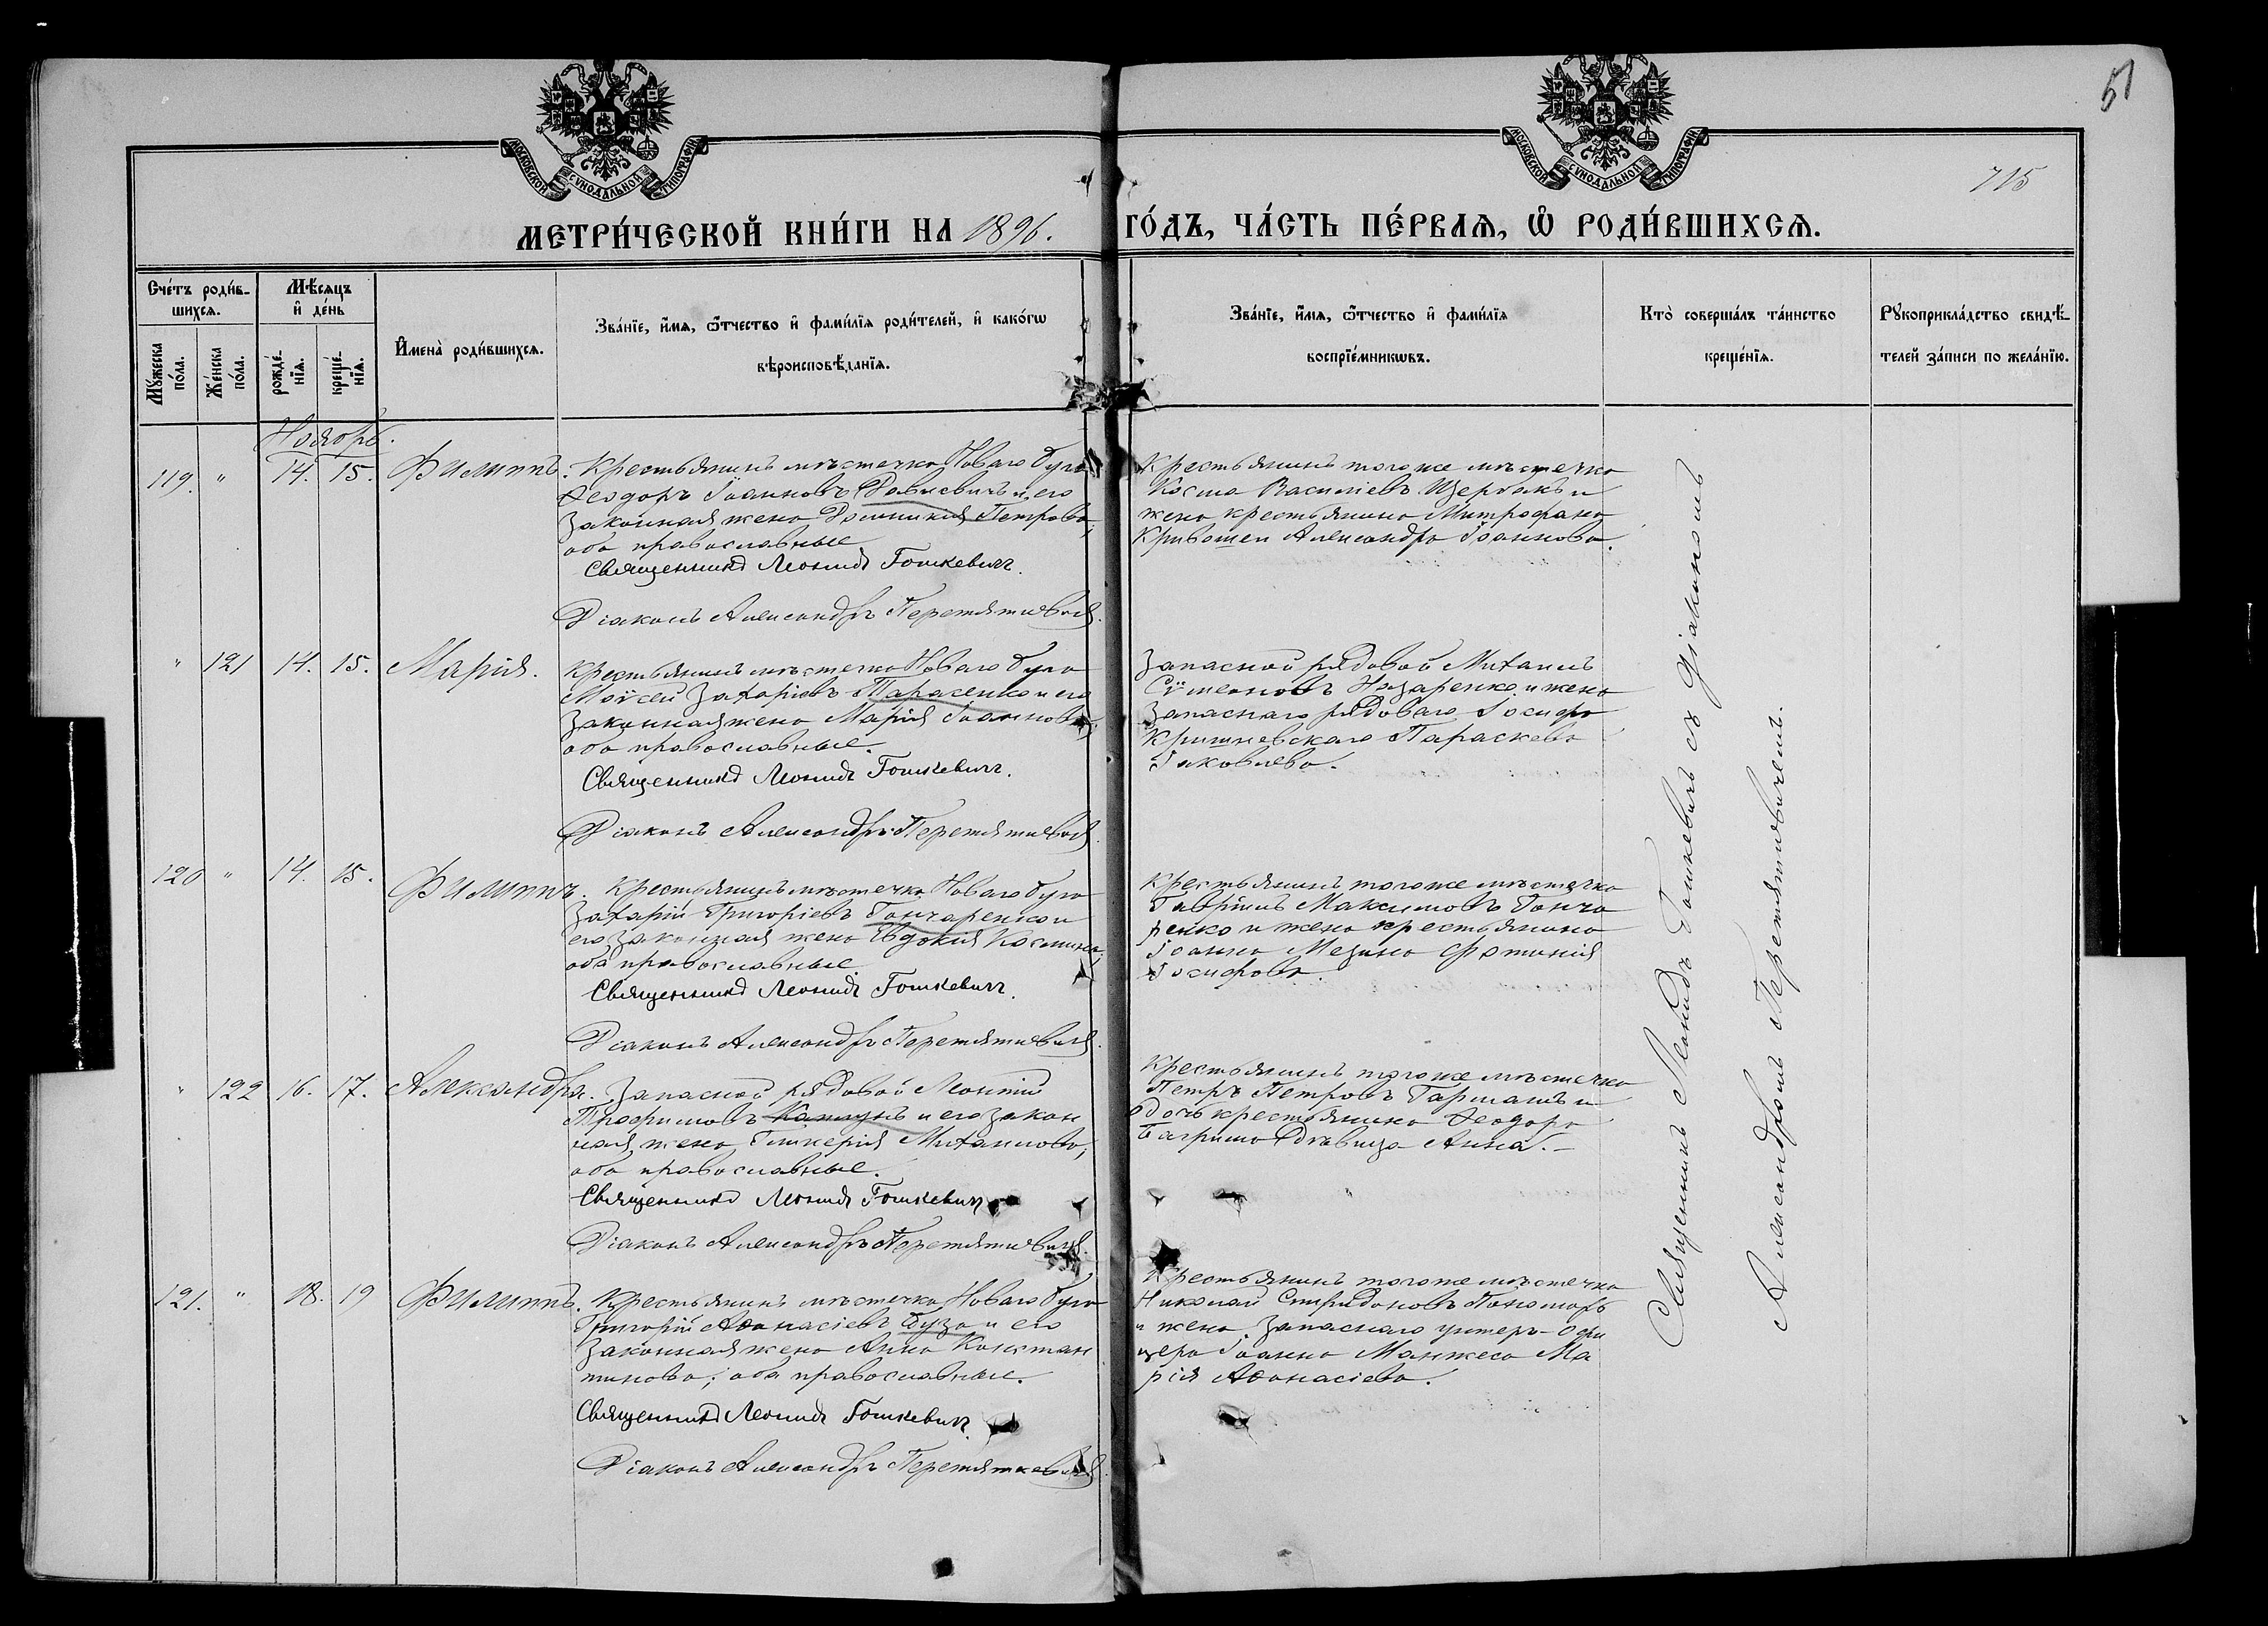 51
МОСКОВСКОЙ СѴНОДАЛЬНОЙ ТИПОГРАФІИ
МОСКОВСКОЙ СѴНОДАЛЬНОЙ ТИПОГРАФІИ
715
МЕТРИ́ЧЕСКОЙ КНИ́ГИ НА 1896. ГО́ДЪ, ЧА́СТЬ ПЕ́РВАѦ, Ѡ РОДИ́ВШИХСѦ.
Сче́тъ роди́в-
шихсѧ.
Мѣ́сѧцъ
и҆ де́нь
Мꙋ́жеска
по́ла.
Же́нска
по́ла.
рожде́-
нїѧ.
креще́-
нїѧ.
И҆мена̀ роди́вшихсѧ.
Зва́нїе, и҆́мѧ, ѻ҆́тчество и҆ фами́лїѧ роди́телей, и҆ како́гѡ
вѣроисповѣ́данїѧ.
Зва́нїе, и҆́мѧ, ѻ҆́тчество и҆ фами́лїѧ
воспрїе́мникѡвъ.
Кто̀ соверша́лъ та́инство
креще́нїѧ.
Рꙋкоприкла́дство свидѣ́-
телей за́писи по жела́нїю.
Ноябрь.
119. " 14. 15. Филиппъ.
Крестьянинъ мѣстечка Новаго Буга
Ѳеодоръ Іоанновъ Савиевичъ и его
законная жена Домникія Петрова,
оба православные
Священникъ Леонидъ Гошкевичъ.
Діаконъ Александръ Перетятковичъ.
Крестьянинъ того же мѣстечка
Косма Василіевъ Щербакъ и
жена крестьянина Митрофана
Кривошеи Александра Іоаннова.
" 121 14. 15. Марія.
Крестьянинъ мѣстечка Новаго Буга
Моѵсей Захаріевъ Тарасенко и его
законная жена Марія Іоаннова,
оба православные.
Священникъ Леонидъ Гошкевичъ.
Діаконъ Александръ Перетятковичъ.
Запасной рядовой Михаилъ
Сѵмеоновъ Назаренко и жена
запаснаго рядоваго Іосифа
Кришневскаго Параскева
Іаковлева.
120 " 14. 15. Филиппъ.
Крестьянинъ мѣстечка Новаго Буга
Захарій Григоріевъ Гончаренко и
его законная жена Евдокія Космина,
оба православные.
Священникъ Леонидъ Гошкевичъ.
Діаконъ Александръ Перетятковичъ.
Крестьянинъ того же мѣстечка
Гавріилъ Максимовъ Гонча
ренко и жена крестьянина
Іоанна Мезина Фотинія
Іосифова.
" 122 16. 17. Александра.
Запасной рядовой Леонтій
Трофимовъ Каплунъ и его закон
ная жена Гликерія Михаилова,
оба православные.
Священникъ Леонидъ Гошкевичъ
Діаконъ Александръ Перетятковичъ.
Крестьянинъ того же мѣстечка
Петръ Петровъ Гармашъ и
дочь крестьянина Ѳеодора
Багрима дѣвица Анна.
121. " 18. 19 Филиппъ.
Крестьянинъ мѣстечка Новаго Буга
Григорій Аѳанасіевъ Буза и его
законная жена Анна Констан
тинова; оба православные.
Священникъ Леонидъ Гошкевичъ.
Діаконъ Александръ Перетятковичъ.
Крестьянинъ того же мѣстечка
Николай Спиридоновъ Пономарь
и жена запаснаго унтеръ-офи
цера Іоанна Манжеса Ма
рія Аѳанасіева.
Священникъ Леонидъ Гошкевичъ съ діакономъ
Александромъ Перетятковичемъ.